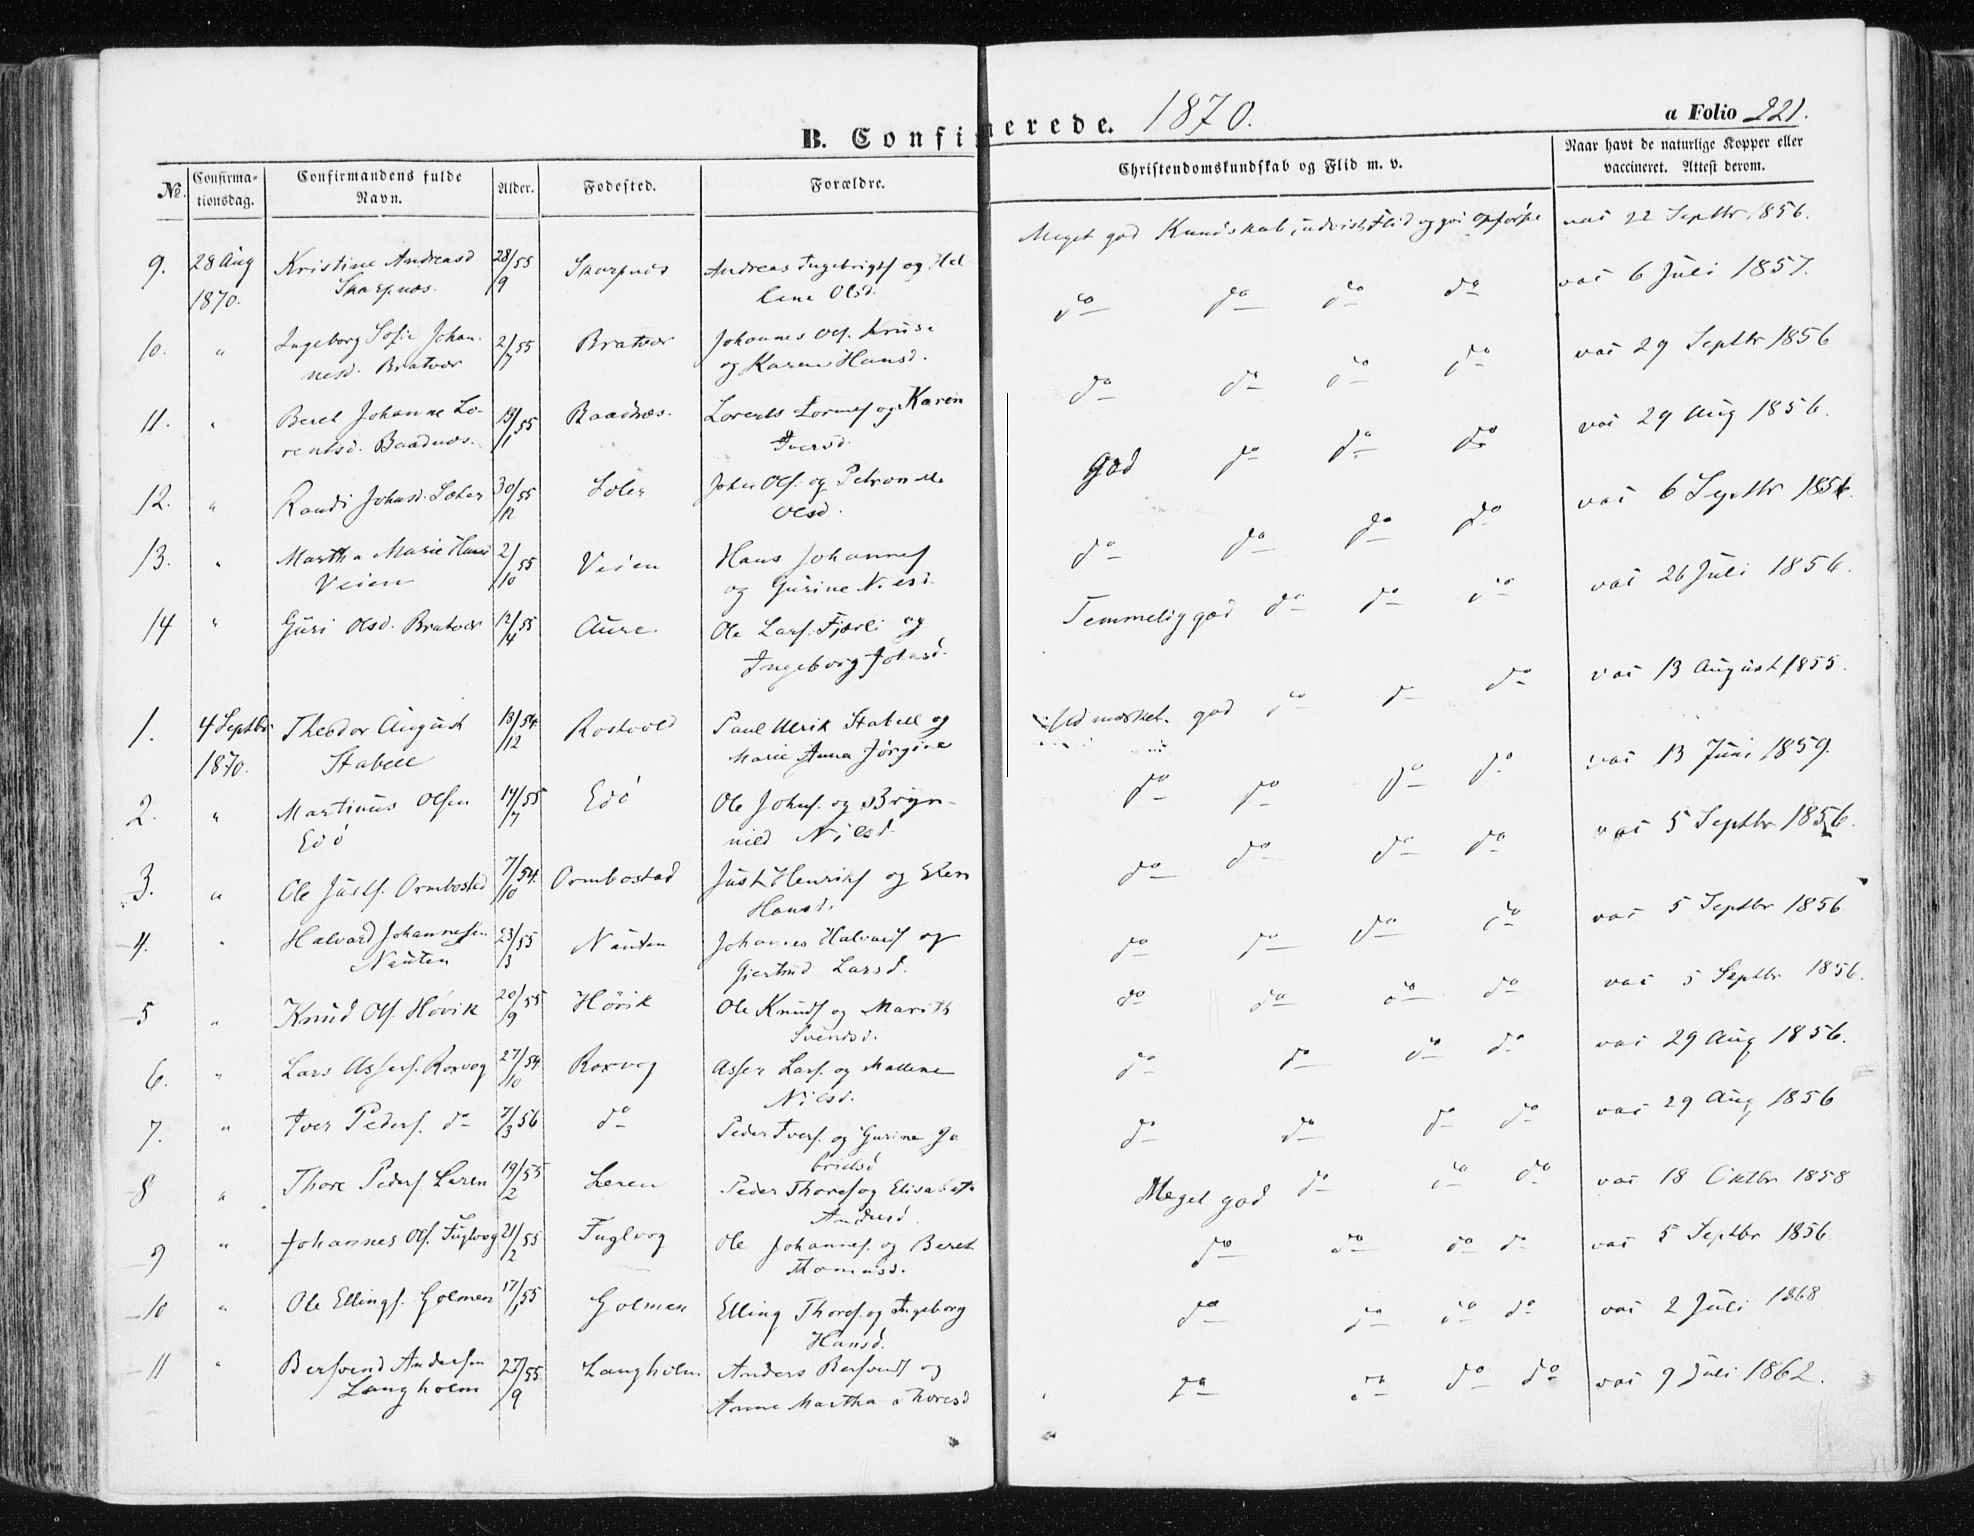 B. Confirmerede. 1870.
a Folio 221.
No.
Confirma-
tionsdag.
Confirmandens fulde
Navn.
Alder.
Fødested.
Forældre.
Christendomskundskab og Flid m. v.
Naar havt de naturlige Kopper eller
vaccineret. Attest derom.
9. 28 Aug 1870. Kristine Andreasd 28/9 55 Skarpnæs Andreas Ingebrigts og Hel-
Skarpnæs. lene Olsd.
Meget god Kundskab, udvist Flid og god Opførsel vac 22 Septbr 1856.
10. " Ingeborg Sofie Johan- 2/7 55 Bratvær Johannes Ols. Kruse
nesd. Bratvær og Karen Hansd.
do do do do vac 6 Juli 1857.
11. " Beret Johanne Lo- 19/1 55 Baadnæs. Lorents Lornts og Karen
rentsd. Baadnæs. Iversd.
do do do do vac 29 Septbr 1856
12. " Randi Johnsd. 30/12 55 John Ols. og Petronelle
Olsd.
God do do do vac 29 Aug 1856.
13. " Martha Marie Hansd 2/10 55 Veien Hans Johannes
Veien og Gurine Nilsd.
do do do do vac 6 Septbr 1856.
14 " Guri Olsd. Bratvær 12/4 55 Aure Ole Lars. Fjærli og
Ingeborg Johnsd.
Temmelig god do do do vac 26 Juli 1856.
1. 4 Septbr 1870. Theodor August 13/12 54 Rostvold Paul Ulrik Stabell og
Stabell Marie Anna Jørgine
Udmærket god do do do vac 13 August 1855.
2. " Martinus Olsen 14/7 55 Edø Ole Johns. og Bryn-
Edø nild Nilsd.
do do do do vac 13 Juni 1859.
3. " Ole Justs. Ormbostad 7/10 54. Ormbostad Just Henriks og Elen
Hansd.
do do do do vac 5 Septbr 1856.
4. " Halvard Johannesen 23/3 55 Nauten Johannes Halvards og
Nauten Gjertrud Larsd.
do do do do vac 5 Septbr 1856
5 " Knud Ols. Høvik 20/9 55 Høvik Ole Knuds og Marith
Svendsd.
do do do do vac 5 Septbr 1856.
6. " Lars Assers. Roxvog 27/10 54 Roxvog Asser Lars. og Mallene
Nilsd.
do do do do vac 29 Aug 1856.
7. " Iver Peders. do 7/3 56 do Peder Ivers. og Gurine Ga
brielsd
do do do do vac 29 Aug 1856
8 " Thore Peders Leren 19/2 55 Leren Peder Thores og Elisabeth
Andersd.
Meget god do do do vac 18 Oktbr 1858
9 " Johannes Ols. Fuglvog 21/2 55 Fuglvog Ole Johannes. og Beret
Thomasd.
do do do do vac 5 Septbr 1856
10 " Ole Ellings. Golmen 17/1 55 Golmen Elling Thores. og Ingeborg
Hansd.
do do do do vac 2 Juli 1868
11 " Bersvend Andersen 27/9 55 Langholm Anders Bersvends og
Langholm Anne Martha Thoresd
do do do do vac 9 Juli 1862.